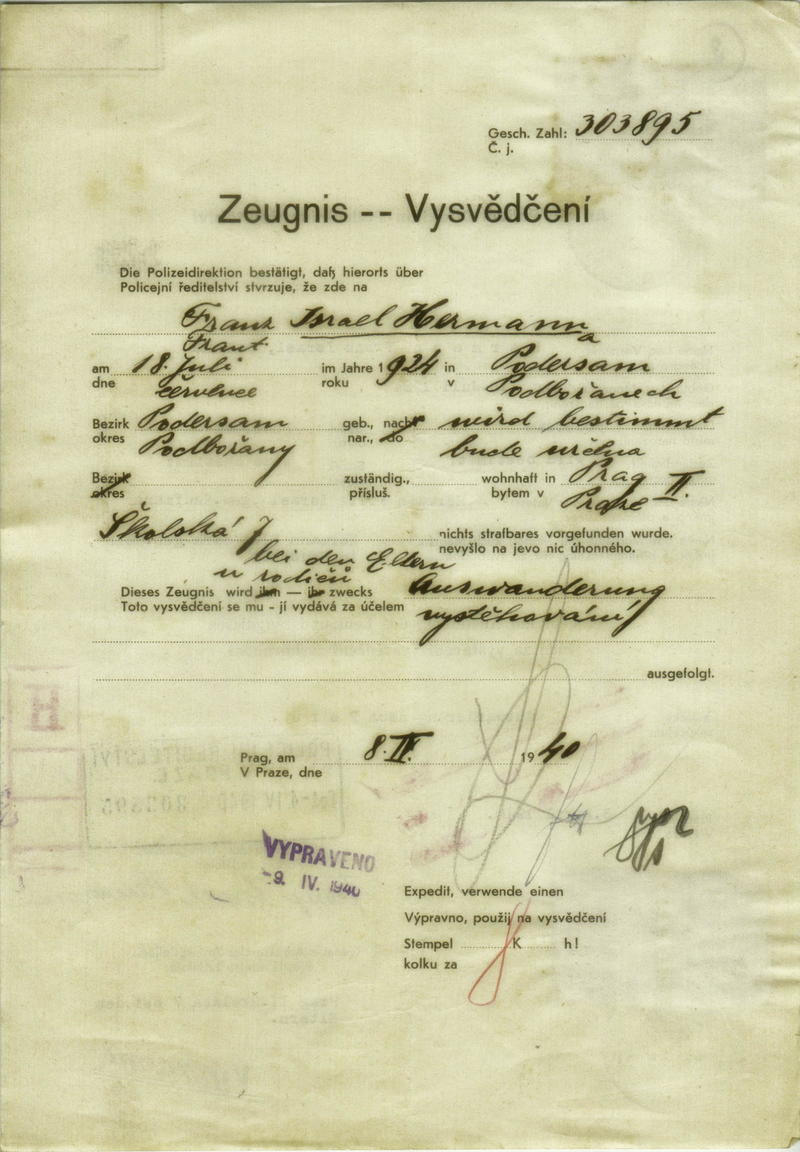 Gesch. Zahl: 303895
Č. j.
Zeugnis -- Vysvědčení
Die Polizeidirektion bestätigt, daß hierorts über
Policejní ředitelství stvrzuje, že zde na
Franz Israel Hermann
a
Frant
am 18. Juli im Jahre 1924 in Podersam
dne července roku v Podbořanech
Bezirk Podersam geb., nach wird bestimmt
okres Podbořany nar., do bude určena
Bezirk zuständig., wohnhaft in Prag II.
okres přísluš. bytem v Praze
Školská 7 nichts strafbares vorgefunden wurde.
nevyšlo na jevo nic úhonného.
bei den Eltern
u rodičů
Dieses Zeugnis wird ihm — ihr zwecks Auswanderung
Toto vysvědčení se mu - jí vydává za účelem vystěhování
ausgefolgt.
Prag, am 8. IV. 1940
V Praze, dne
VYPRAVENO
-9. IV. 1940
Expedit, verwende einen
Výpravno, použij na vysvědčení
Stempel K h!
kolku za